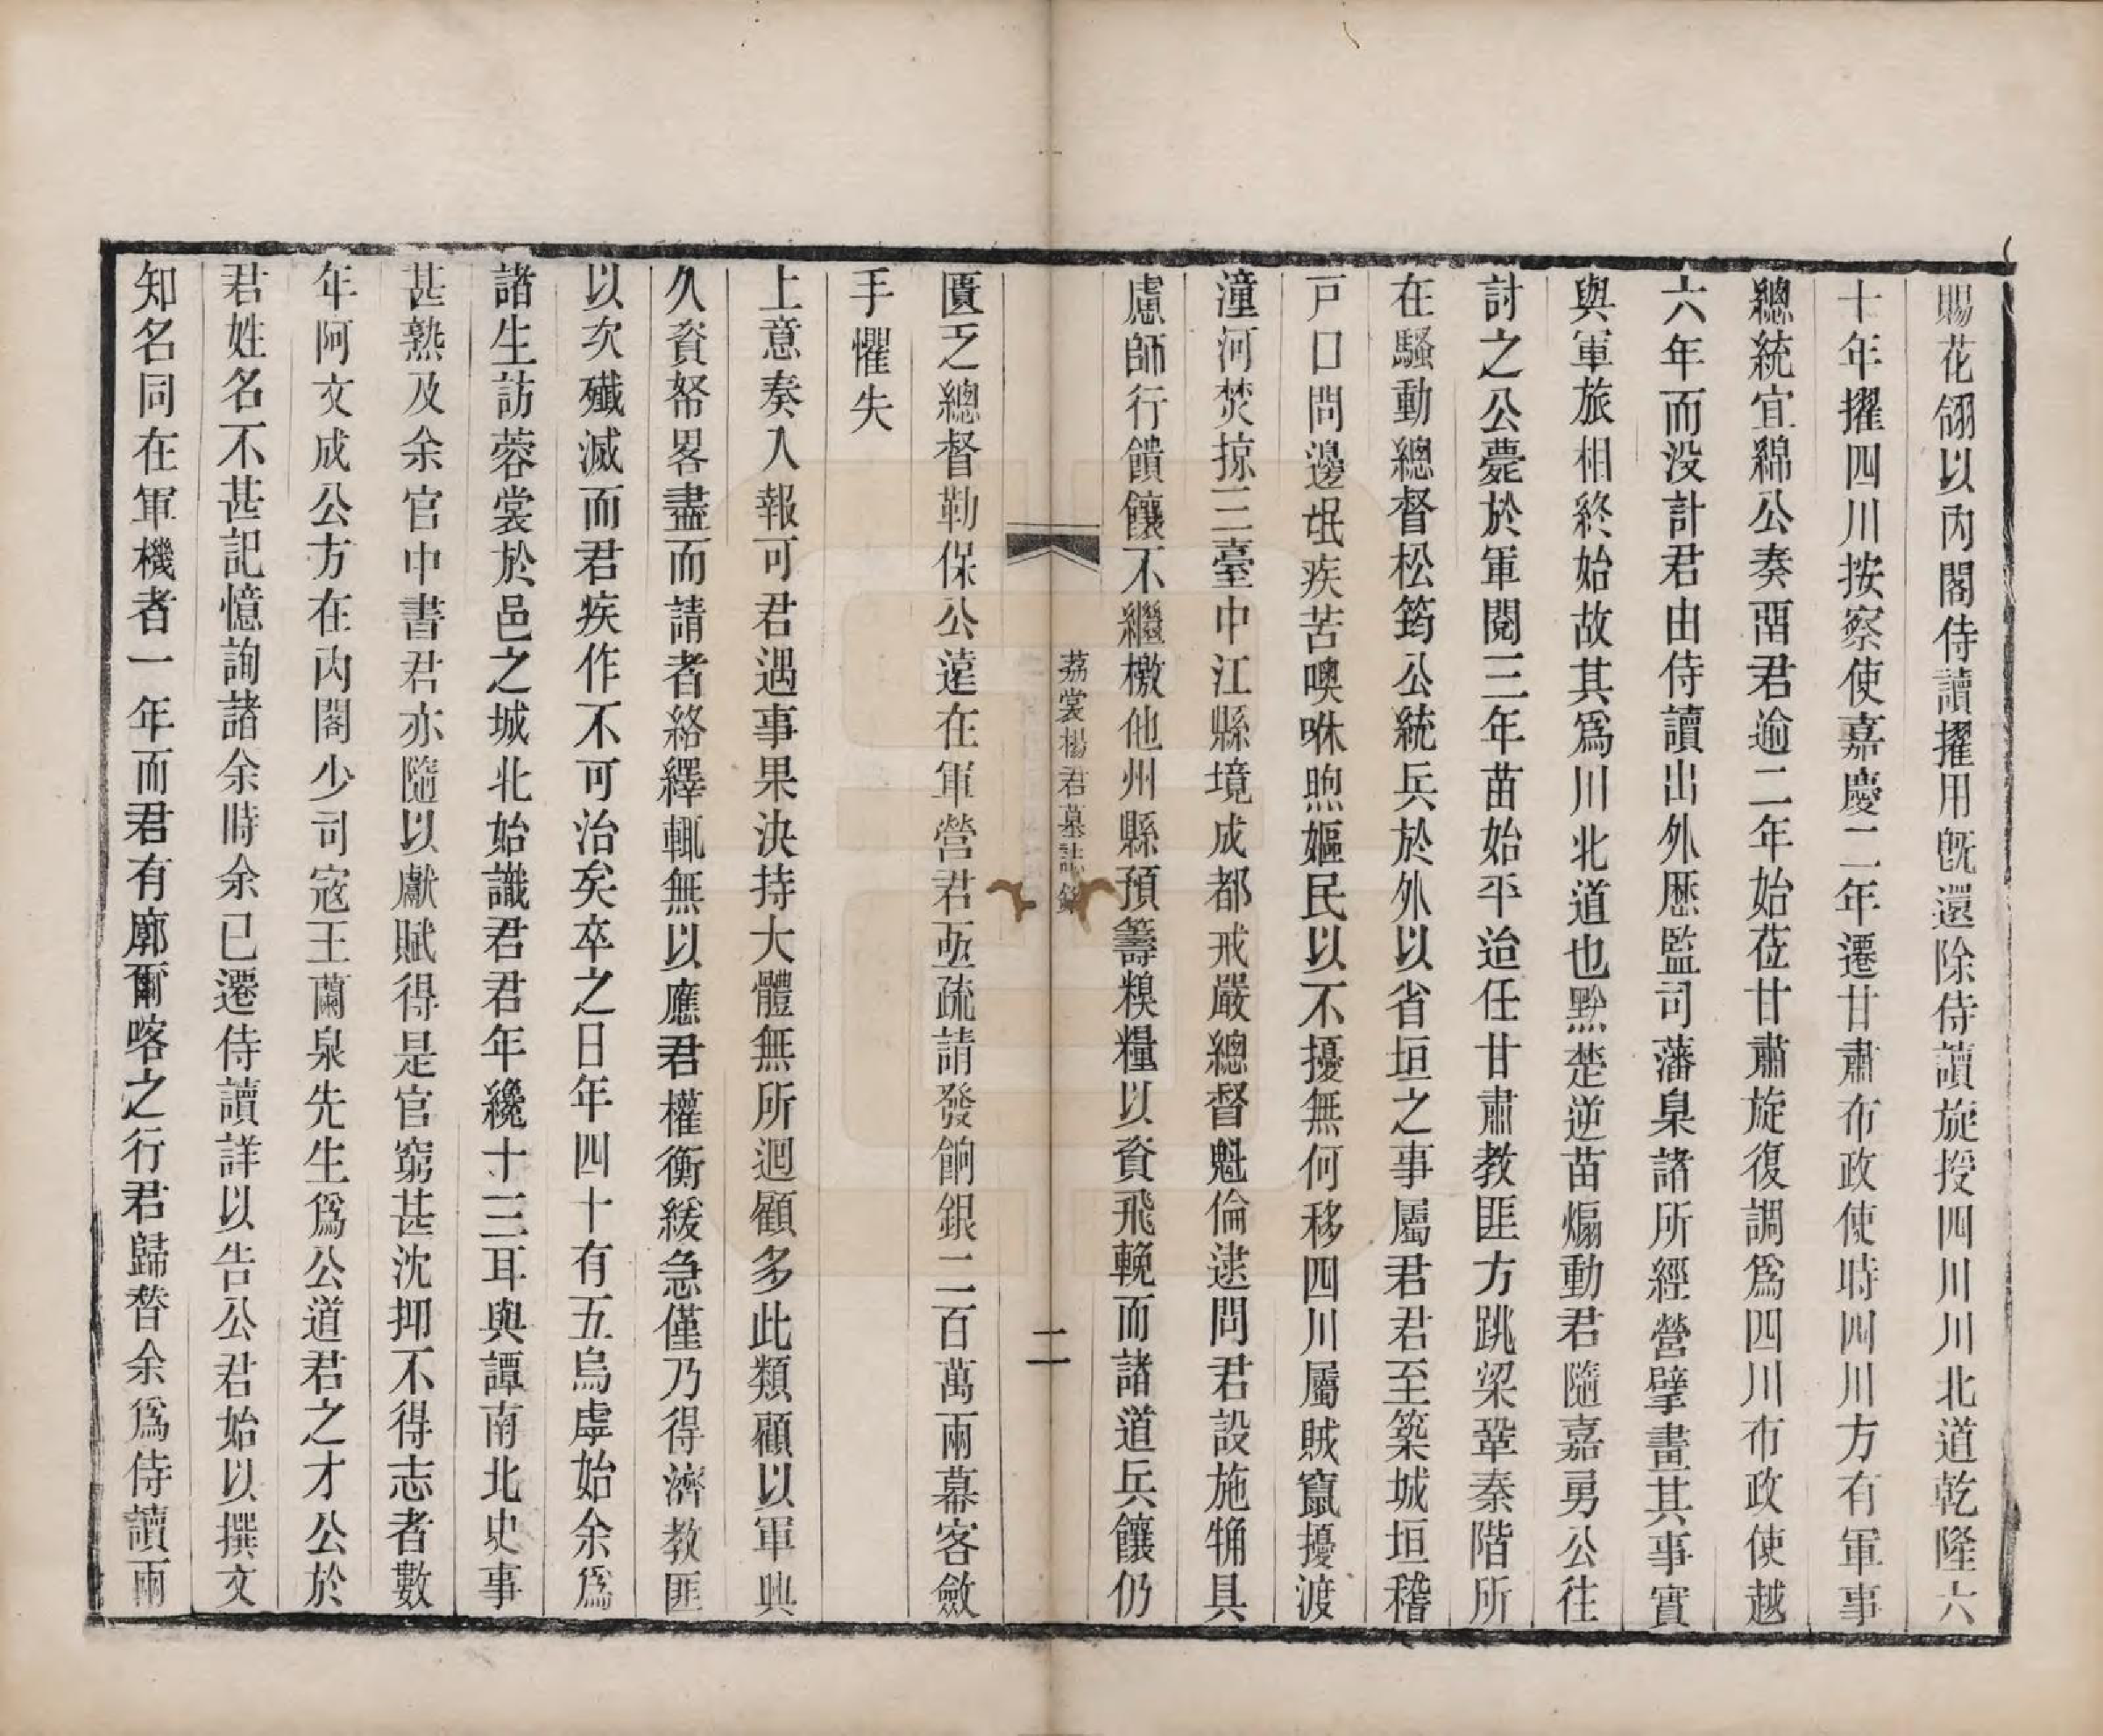 賜花翎以內閣侍讀擢用旣還除侍讀旋授四川川北道乾隆六
十年擢四川按察使嘉慶二年遷甘肅布政使時四川方有軍事
總統宜綿公奏畱君逾二年始莅甘肅旋復調爲四川布政使越
六年而没計君由侍讀出外歷監司藩臬諸所經營擘畫其事實
與軍旅相終始故其爲川北道也黔楚逆苗煽動君隨嘉勇公往
討之公薨於軍閱三年苗始平迨任甘肅教匪方跳梁鞏秦階所
在騷動總督松筠公統兵於外以省垣之事屬君君至築城垣稽
戸口問邊氓疾苦噢咻煦嫗民以不擾無何移四川屬賊竄擾渡
潼河焚掠三臺中江縣境成都戒嚴總督魁倫逮問君設施犕具
慮師行饋饟不繼檄他州縣預籌糗糧以資飛輓而諸道兵饟仍
荔裳楊君墓誌銘
二
匱乏總督勒保公遠在軍營君亟疏請發餉銀二百萬兩幕客斂
手懼失
上意奏入報可君遇事果決持大體無所迴顧多此類顧以軍興
久資帑畧盡而請者絡繹輒無以應君權衡緩急僅乃得濟教匪
以次殱滅而君疾作不可治矣卒之日年四十有五烏虖始余爲
諸生訪蓉裳於邑之城北始識君君年纔十三耳與譚南北史事
甚熟及余官中書君亦隨以獻賦得是官窮甚沈抑不得志者數
年阿文成公方在內閣少司寇王蘭泉先生爲公道君之才公於
君姓名不甚記憶詢諸余時余已遷侍讀詳以告公君始以撰文
知名同在軍機者一年而君有廓爾喀之行君歸朁余爲侍讀兩